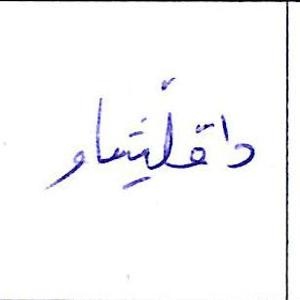 داقلیشاو